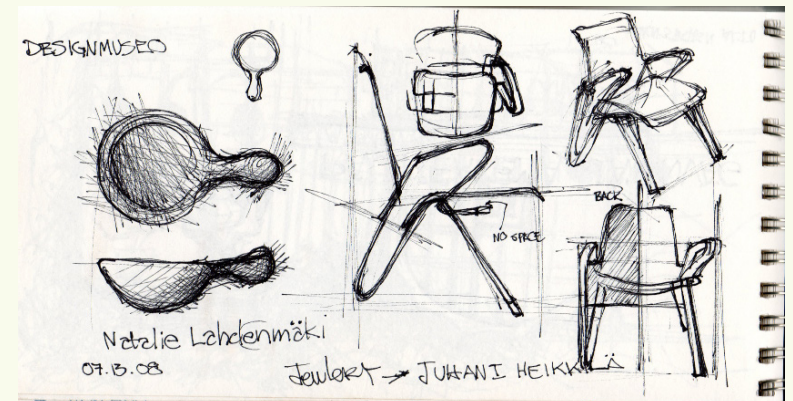 DESIGNMUSEO
BACK
NO SPACE
Natalie Lahdenmäki
07.13.08
Jewlery → JUHANI HEIKK